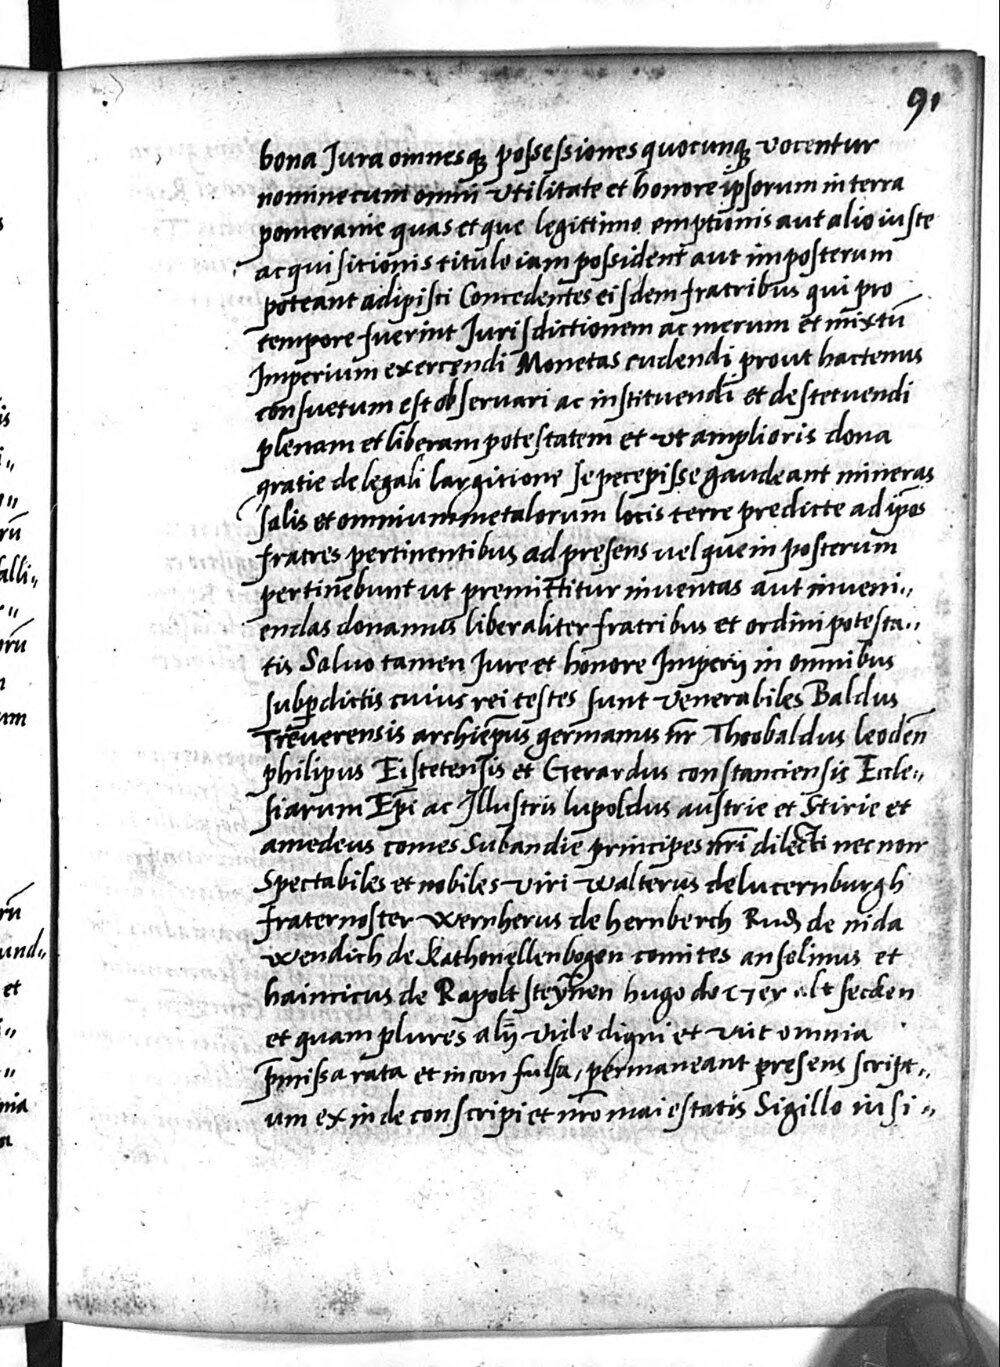 91
bona Jura omnesq; possessiones quocunq; vocentur
nomine cum omni vtilitate et honore ipsorum in terra
pomeranie quas et que legittimo emptionis aut alio iuste
acquisitionis titulo iam possident aut imposterum
poteant adipisci Concedentes eisdem fratribus qui pro
tempore fuerint Jurisdictionem ac merum et mixtū
Imperium exercendi Monetas cudendi prout hactenus
consuetum est observari ac instituendi et destetuendi
plenam et liberam potestatem et vt amplioris dona
gratie de legali largitione se pecepisse gaudeant mineras
salis et omnium metalorum locis terre predicte ad ip̄os
fratres pertinentibus ad presens vel que in posterum
pertinebunt ut premittitur inventas aut inveni„
endas donamus liberaliter fratribus et ordini potesta„
tis Salvo tamen Jure et honore Imperij in omnibus
supᵱdictis cuius rei testes sunt venerabiles Baldus
Treverensis archiep̄us germanus nr̄ Theobaldus leodēn
philipus Eistetensis et Gerardus constanciensis Eccle„
siarum Ep̄i ac Illustris lupoldus austrie et Stirie et
amedeus comes Subandie principes nr̄i dilecti nec non
Spectabiles et nobiles viri walterus de lucernburgh
frater noster wernherus de hernberch Rud de nida
wendich de kathonellenbogen comites anselinus et
hainricus de Rapoltsteynen hugo de
et quam plures alij vide digni et vut omnia
p̄missa rata et inconfulsa, ᵱmaneant presens script„
um exinde conscripi et nr̄o maiestatis Sigillo iusi„
is
rū
alli„
orū
um
rū
und„
et
nia